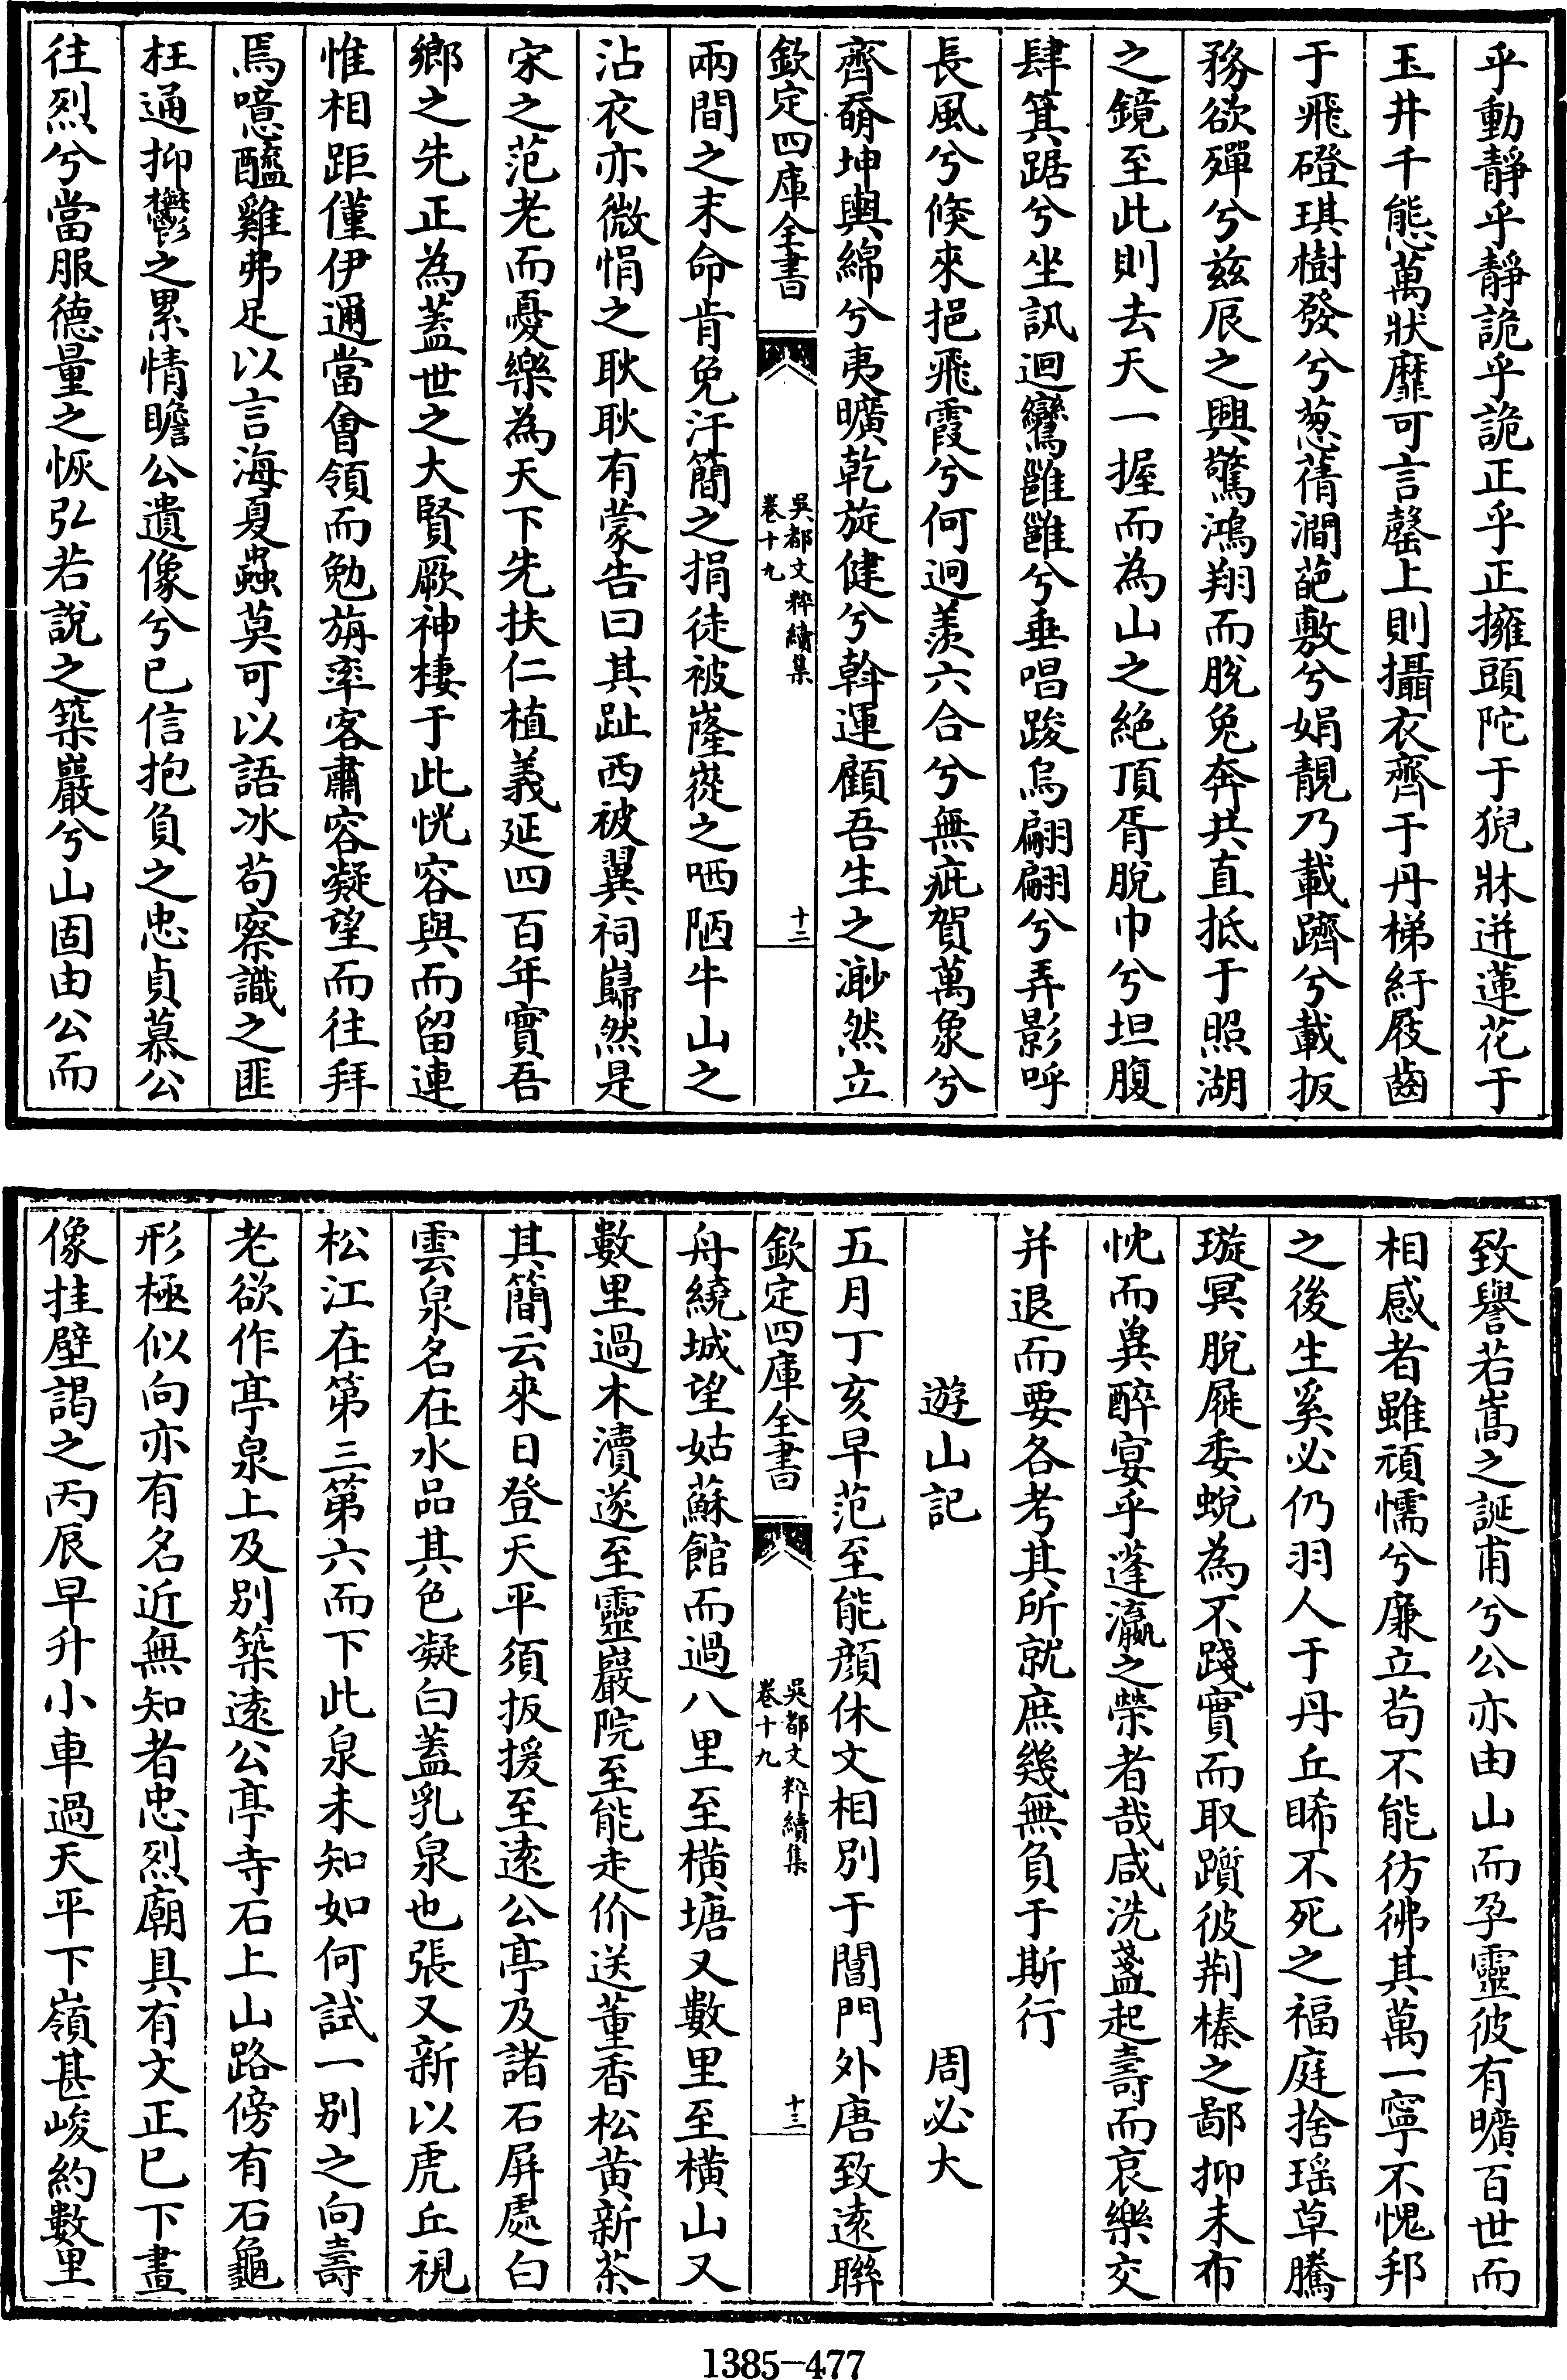 乎動靜乎靜詭乎詭正乎正擁頭陀于猊牀迸蓮花于
玉井千態萬狀靡可言罄上則攝衣齊于丹梯紆屐齒
于飛磴琪樹發兮葱蒨澗葩敷兮娟靚乃載躋兮載扳
務欲殫兮兹辰之興驚鴻翔而脫兔奔共直抵于照湖
之鏡至此則去天一握而為山之絶頂胥脫巾兮坦腹
肆箕踞兮坐訊迴鸞雝雝兮垂唱踆烏翩翩兮弄影呼
長風兮倏來挹飛霞兮何迥羨六合兮無疵賀萬象兮
齊奫坤輿綿兮夷曠乾旋健兮斡運顧吾生之渺然立
欽定四庫全書
吳都文粹續集
卷十九
十二
兩間之末命肯免汗簡之捐徒被嶐嵸之哂陋牛山之
沾衣亦微悁之耿耿有蒙告曰其趾西被翼祠巋然是
宋之范老而憂樂為天下先扶仁植義延四百年實吾
鄉之先正為蓋世之大賢厥神棲于此恍容與而留連
惟相距僅伊邇當會領而勉旃率客肅容凝望而往拜
焉噫醯雞弗足以言海夏蟲莫可以語冰苟察識之匪
枉通抑鬱之累情瞻公遺像兮已信抱負之忠貞慕公
往烈兮當服德量之恢弘若說之築巖兮山固由公而
致譽若嵩之誕甫兮公亦由山而孕靈彼有曠百世而
相感者雖頑懦兮廉立苟不能彷彿其萬一寧不愧邦
之後生奚必仍羽人于丹丘睎不死之福庭捨瑶草騰
璇冥脫屣委蛻為不踐實而取躓彼荆榛之鄙抑未布
忱而奠醉宴乎蓬瀛之榮者哉咸洗盞起壽而哀樂交
并退而要各考其所就庶幾無負于斯行
遊山記 周必大
五月丁亥早范至能顔休文相別于閶門外唐致遠聯
欽定四庫全書
吳都文粹續集
卷十九
十三
舟繞城望姑蘇館而過八里至橫塘又數里至橫山又
數里過木瀆遂至靈巖院至能走价送董香松黄新茶
其簡云來日登天平須扳援至遠公亭及諸石屏處白
雲泉名在水品其色凝白蓋乳泉也張又新以虎丘視
松江在第三第六而下此泉未知如何試一别之向壽
老欲作亭泉上及别築遠公亭寺石上山路傍有石龜
形極似向亦有名近無知者忠烈廟具有文正已下畫
像挂壁謁之丙辰早升小車過天平下嶺甚峻約數里
1385-477